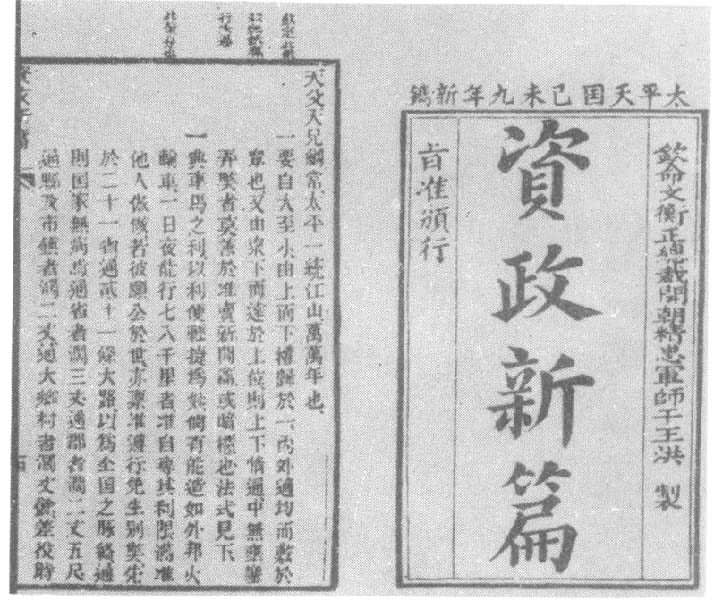 太平天囯己未九年新鐫
欽命文衡正總裁開朝精忠軍師干王洪 製
資政新篇
旨准頒行
天父天兄綱常太平一統江山萬萬年也
一要自大至小由上而下權歸於一內外適均而敷於
眾也又由眾下而達於上位則上下情通中無壅塞
弄弊者莫善於准賣新聞篇或暗櫃也法式見下
一興車馬之利以利便輕捷為妙倘有能造如外邦火
輪車一日夜能行七八千里者准自專其利限滿准
他人倣做若彼願公於世亦禀准遵行免生別弊先
於二十一省通貳十一條大路以為全国之脉絡通
則国家無病焉通省者濶三丈通郡者濶二丈五尺
通縣及市鎮者濶二丈通大鄉村者濶丈餘差役時